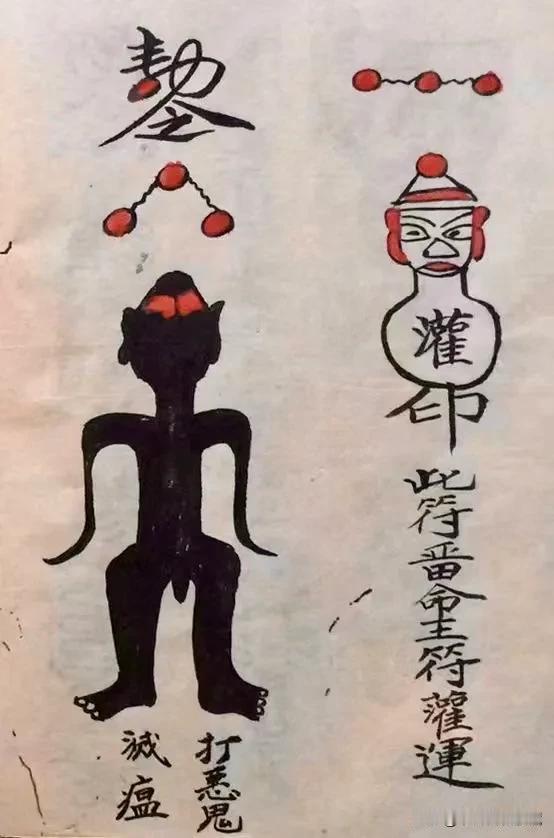 灌
印
此符畨命主符灌運
打悪鬼
滅瘟